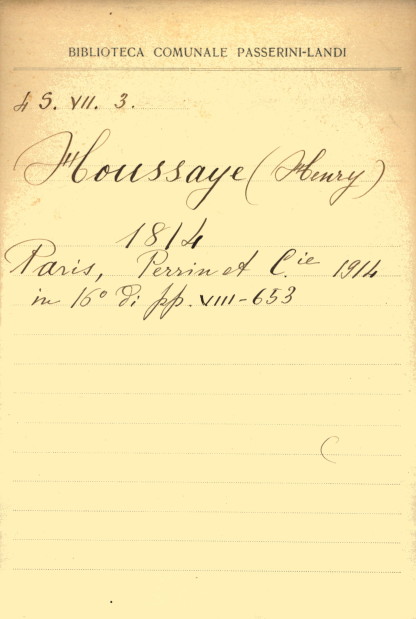 BIBLIOTECA COMUNALE PASSERINI-LANDI
4 S. VII. 3.
Houssaye (Henry)
1814
Paris, Perrin et C.ie 1914
in 16° di pp. VIII-653
(